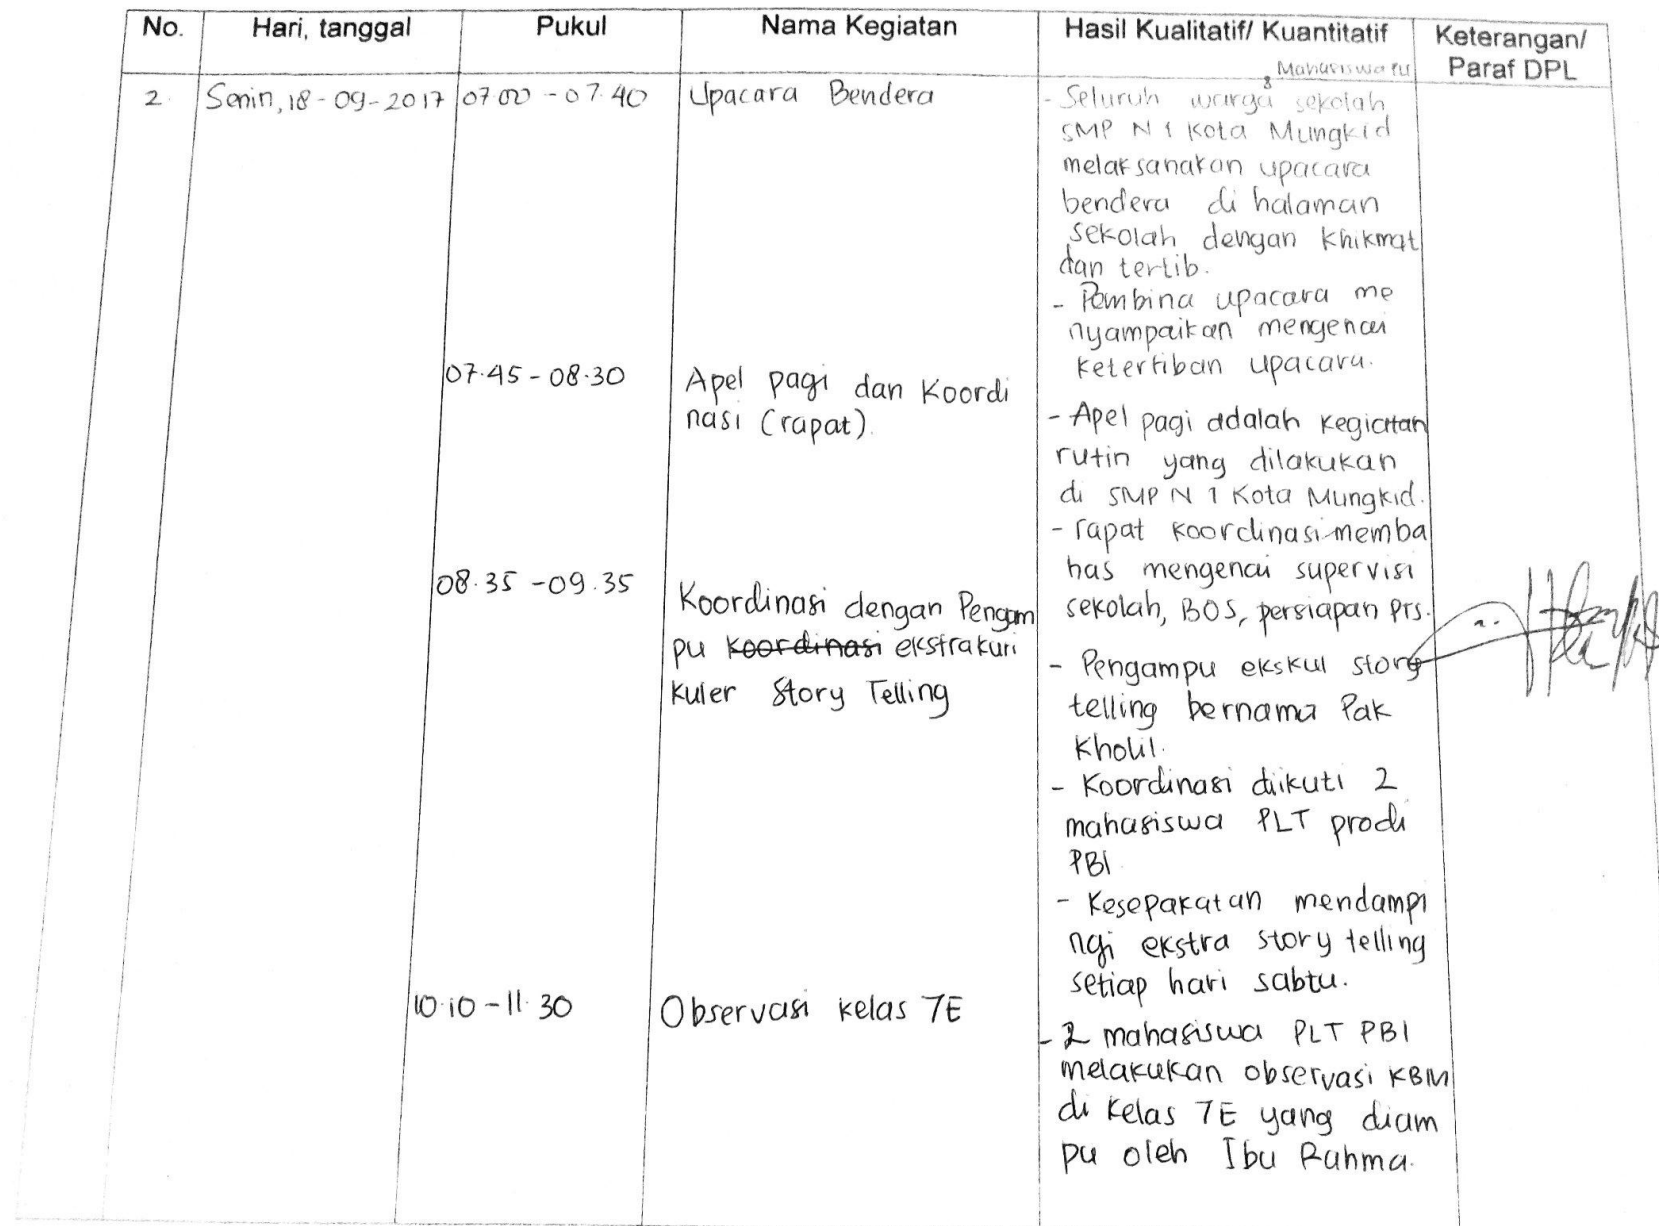 No. Hari, tanggal Pukul Nama Kegiatan Hasil Kualitatif/ Kuantitatif Keterangan/
Paraf DPL
2. Senin, 18-09-2017 07.00 - 07.40 Upacara Bendera
& Mahasiswa
- Seluruh warga sekolah
SMP N 1 Kota Mungkid
melaksanakan upacara
bendera di halaman
sekolah dengan khikmat
dan tertib.
- Pembina upacara me
nyampaikan mengenai
ketertiban upacara.
07.45 - 08.30 Apel pagi dan Koordi
nasi (rapat).
- Apel pagi adalah kegiatan
rutin yang dilakukan
di SMP N 1 Kota Mungkid.
- rapat koordinasi memba
has mengenai supervisi
sekolah, BOS, persiapan PTS.
08.35 - 09.35 Koordinasi dengan Pengam
pu koordinasi ekstrakuri
kuler Story Telling
- Pengampu ekskul story
telling bernama Pak
Kholil.
- Koordinasi diikuti 2
mahasiswa PLT prodi
PBI
- Kesepakatan mendampi
ngi ekstra story telling
setiap hari sabtu.
10.10 - 11.30 Observasi kelas 7E
- 2 mahasiswa PLT PBI
melakukan observasi KBM
di kelas 7E yang diam
pu oleh Ibu Rahma.